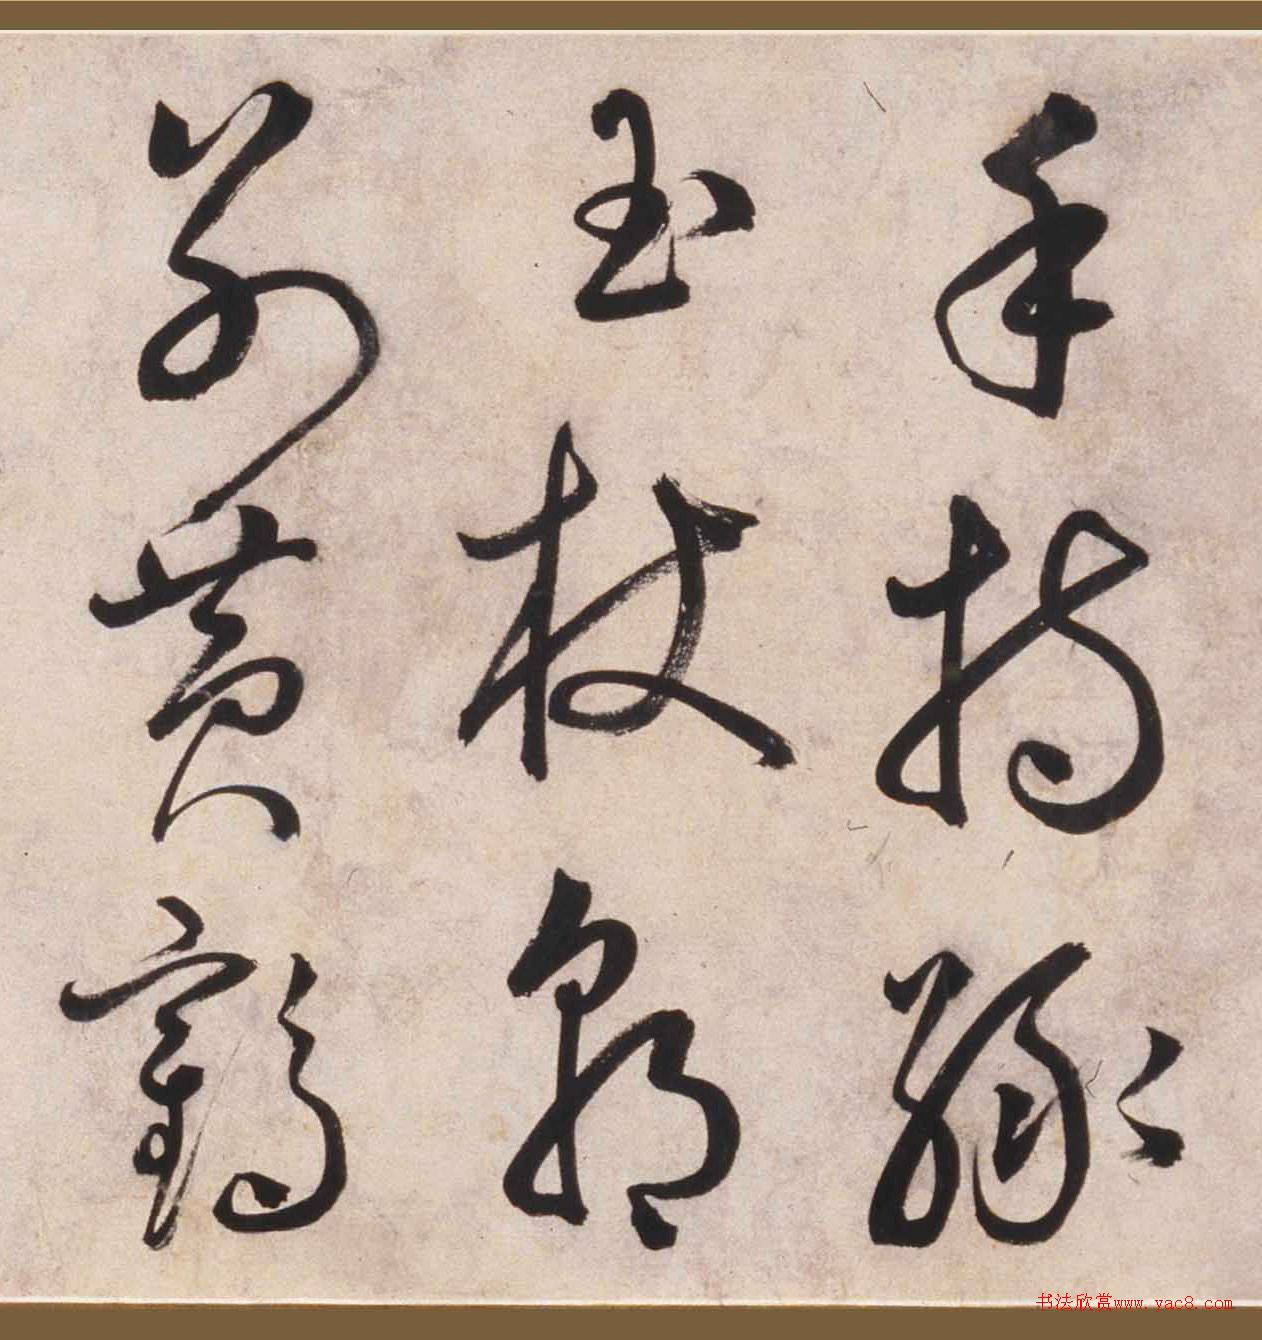 手持緑
玉杖朝
别黄鶴
书法欣赏www.yac8.com